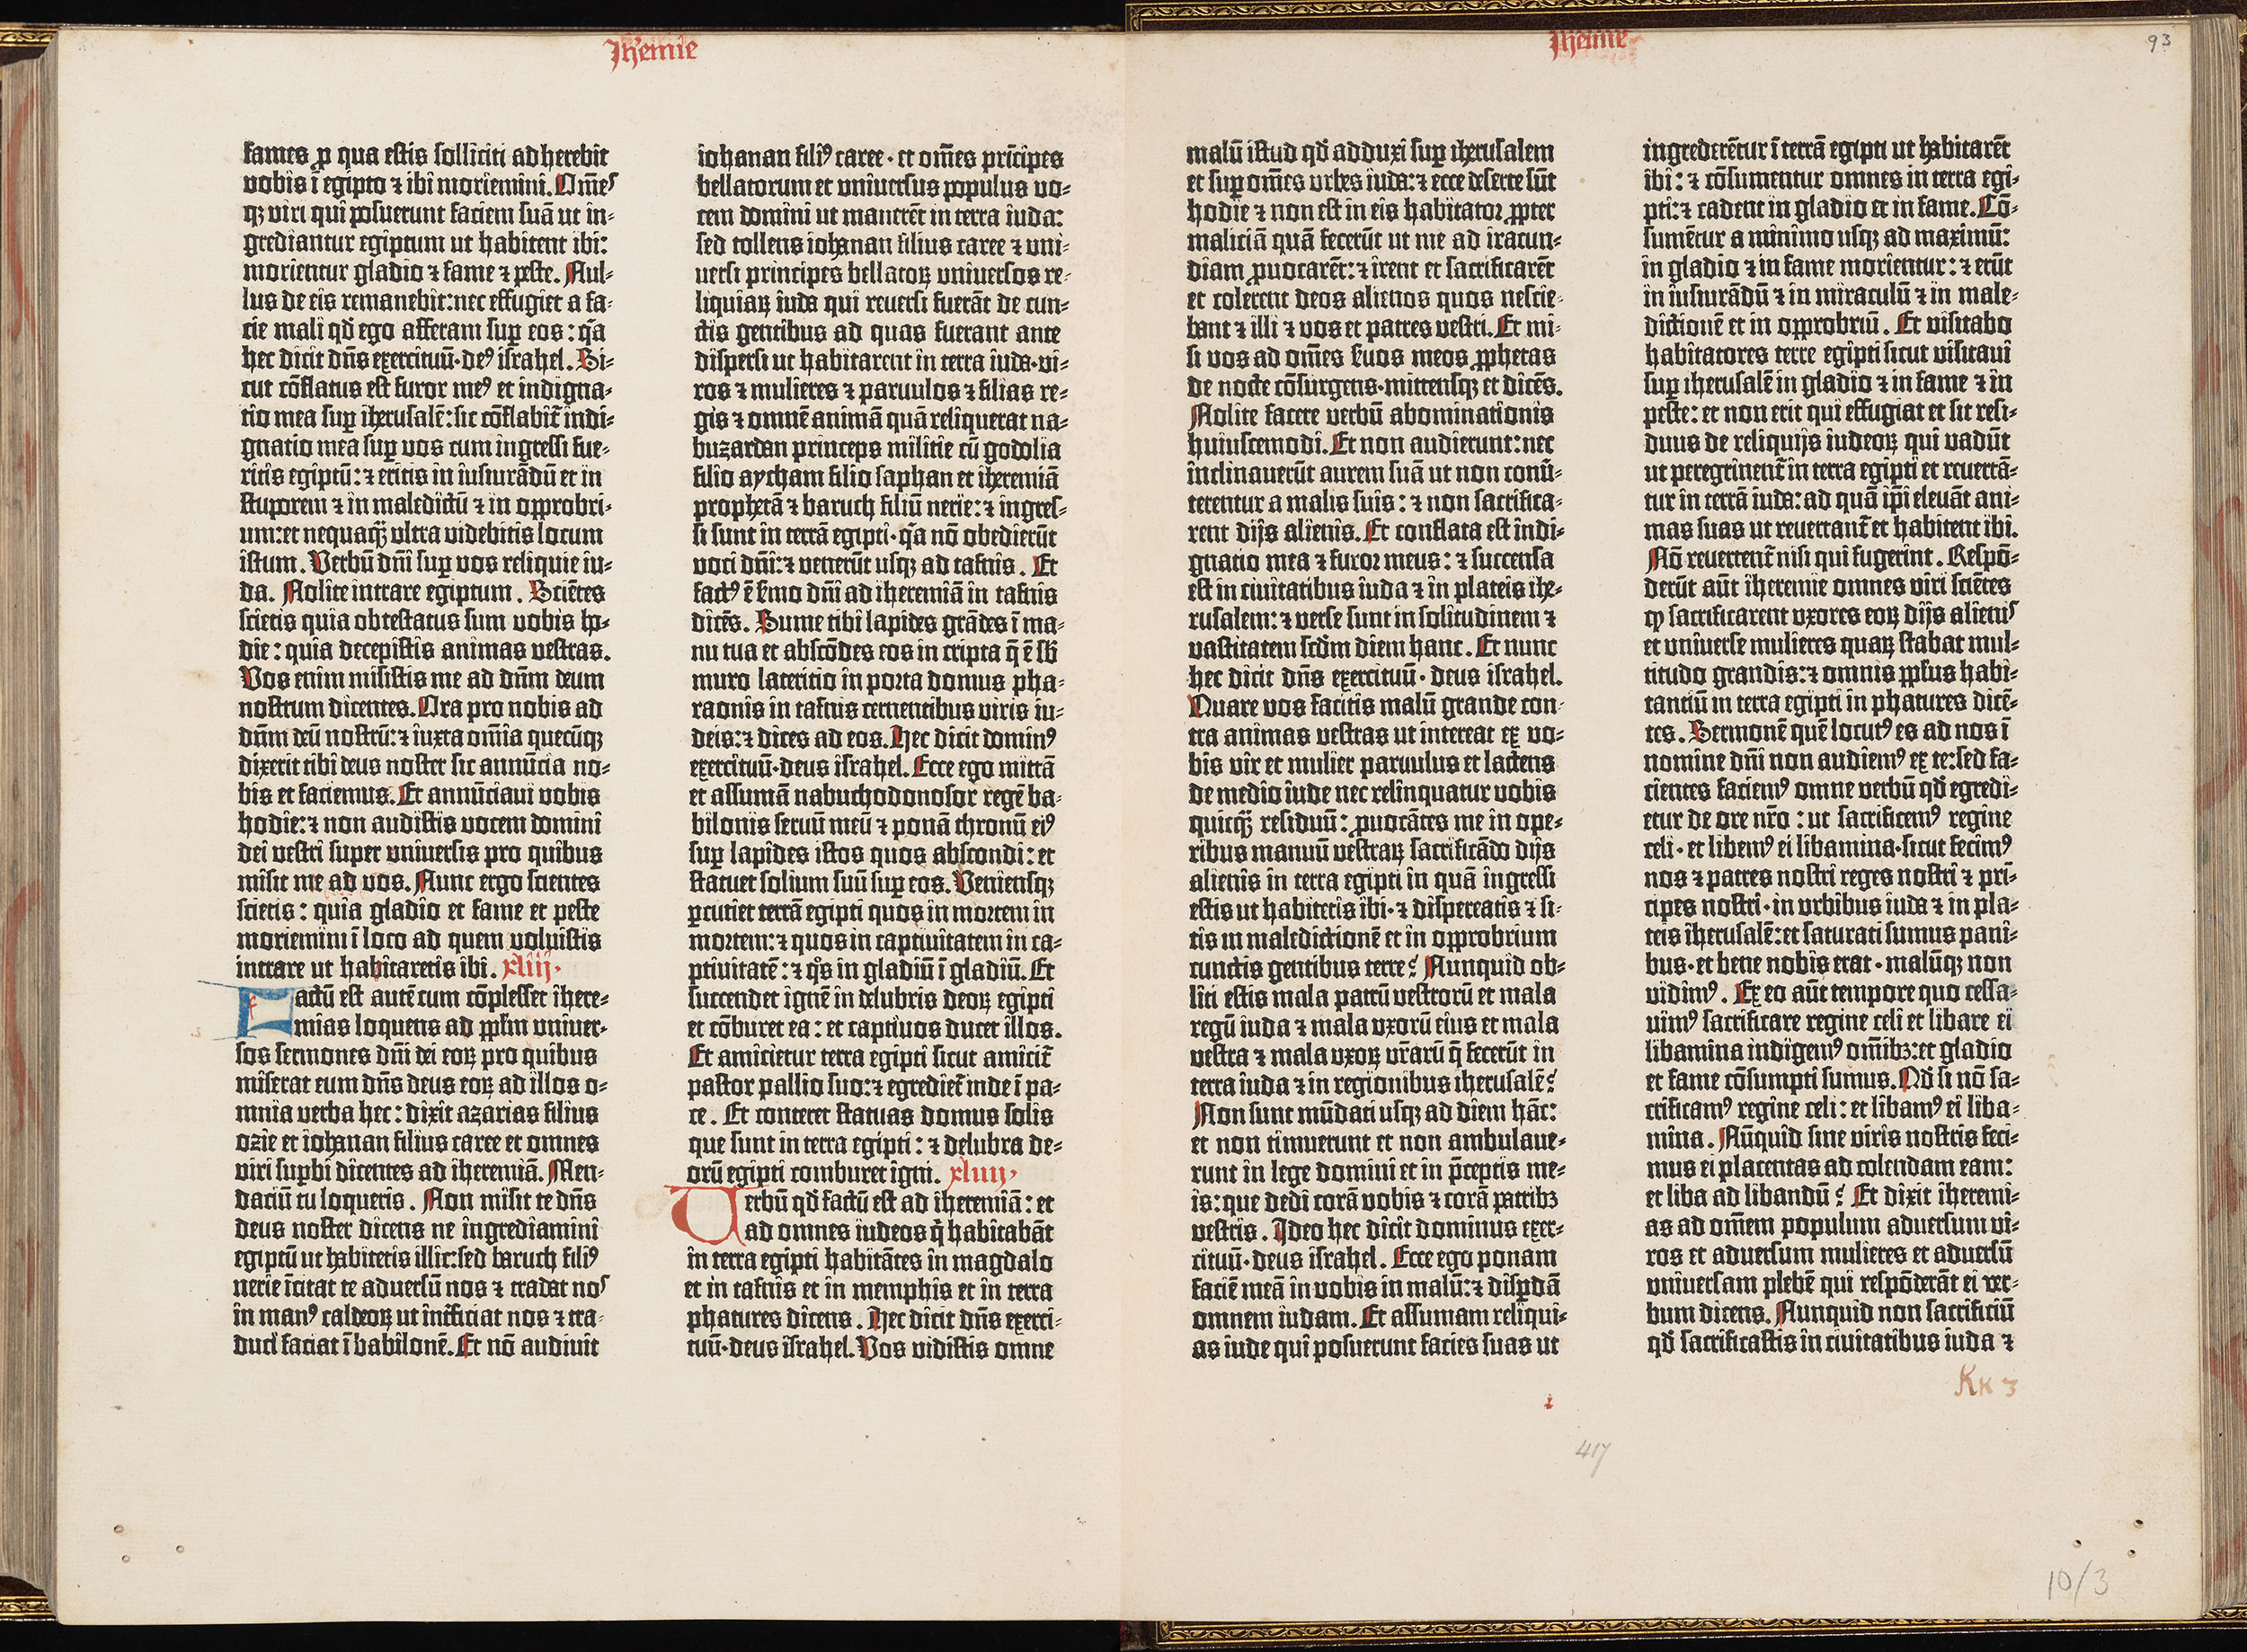 Jh'emie
fames ꝓ qua estis solliciti adherebit
vobis ī egipto ⁊ ibi moriemini. Om̄es
qꝫ viri qui posuerunt faciem suā ut in⸗
grediantur egiptum ut habitent ibi:
morientur gladio ⁊ fame ⁊ peste. Nul⸗
lus de eis remanebit: nec effugiet a fa⸗
cie mali qđ ego afferam suꝑ eos: q̄a
hec dicit dn̄s exercituū·deꝰ israhel. Si⸗
cut cōflatus est furor meꝰ et indigna⸗
tio mea suꝑ iherusalē: sic cōflabit᷑ indi⸗
gnatio mea suꝑ vos cum ingressi fue⸗
ritis egiptū: ⁊ eritis in iusiurādū et in
stuporem ⁊ in maledictū ⁊ in opprobri⸗
um: et nequaꝙ̄ ultra videbitis locum
istum. Verbū dn̄i suꝑ vos reliquie iu⸗
da. Nolite intrare egiptum. Sciētes
scietis quia obtestatus sum vobis ho⸗
die: quia decepistis animas vestras.
Vos enim misistis me ad dn̄m deum
nostrum dicentes. Ora pro nobis ad
dn̄m deū nostrū: ⁊ iuxta om̄ia quecūqꝫ
dixerit tibi deus noster sic annūcia no⸗
bis et faciemus. Et annūciavi vobis
hodie: ⁊ non audistis vocem domini
dei vestri super universis pro quibus
misit me ad vos. Nunc ergo scientes
scietis: quia gladio et fame et peste
moriemini ī loco ad quem voluistis
intrare ut habitaretis ibi. xliij·
Factū est autē cum cōplesset ihere⸗
mias loquens ad ppl'm univer⸗
sos sermones dn̄i dei eoꝝ pro quibus
miserat eum dn̄s deus eoꝝ ad illos o⸗
mnia verba hec: dixit azarias filius
ozie et iohanan filius caree et omnes
viri suꝑbi dicentes ad iheremiā. Men⸗
daciū tu loqueris. Non misit te dn̄s
deus noster dicens ne ingrediamini
egiptū ut habitetis illic: sed baruch filiꝰ
nerie īcitat te adversū nos ⁊ tradat nos
in manꝰ caldeoꝝ ut int̄ficiat nos ⁊ tra⸗
duci faciat ī babilonē. Et nō audivit
iohanan filiꝰ caree· et om̄es prīcipes
bellatorum et universus populus vo⸗
cem domini ut manerēt in terra iuda:
sed tollens iohanan filius caree ⁊ uni⸗
versi principes bellatoꝝ universos re⸗
liquiaꝝ iuda qui reversi fuerāt de cun⸗
ctis gentibus ad quas fuerant ante
dispersi ut habitarent in terra iuda·vi⸗
ros ⁊ mulieres ⁊ parvulos ⁊ filias re⸗
gis ⁊ omnē animā quā reliquerat na⸗
buzardan princeps militie cū godolia
filio aycham filio saphan et iheremiā
prophetā ⁊ baruch filiū nerie: ⁊ ingres⸗
si sunt in terrā egipti· q̄a nō obedierūt
voci dn̄i: ⁊ venerūt usqꝫ ad tafnis. Et
factꝰ ē s̄mo dn̄i ad iheremiā in tafnis
dicēs. Sume tibi lapides grādes ī ma⸗
nu tua et abscōdes eos in cripta q̄ ē sb̄
muro latericio in porta domus pha⸗
raonis in tafnis cernentibus viris iu⸗
deis: ⁊ dices ad eos. Hec dicit dominꝰ
exercituū·deus israhel. Ecce ego mittā
et assumā nabuchodonosor regē ba⸗
bilonis servū meū ⁊ ponā thronū eiꝰ
suꝑ lapides istos quos abscondi: et
statuet solium suū suꝑ eos. Veniensqꝫ
ꝑcutiet terrā egipti quos in mortem in
mortem: ⁊ quos in captivitatem in ca⸗
ptivitatē: ⁊ qͦs in gladiū ī gladiū. Et
succendet ignē in delubris deoꝝ egipti
et cōburet ea: et captivos ducet illos.
Et amicietur terra egipti sicut amicit᷑
pastor pallio suo: ⁊ egrediet᷑ inde ī pa⸗
ce. Et conteret statuas domus solis
que sunt in terra egipti: ⁊ delubra de⸗
orū egipti comburet igni. xliiij·
Verbū qđ factū est ad iheremiā: et
ad omnes iudeos q̇ habitabāt
in terra egipti habitātes in magdalo
et in tafnis et in memphis et in terra
phatures dicens. Hec dicit dn̄s exerci⸗
tuū·deus israhel. Vos vidistis omne
Jh'emie
93
malū istud qđ adduxi suꝑ iherusalem
et suꝑ om̄es urbes iuda: ⁊ ecce deserte sūt
hodie ⁊ non est in eis habitator ꝓpter
maliciā quā fecerūt ut me ad iracun⸗
diam ꝓvocarēt: ⁊ irent et sacrificarēt
et colerent deos alienos quos nescie⸗
bant ⁊ illi ⁊ vos et patres vestri. Et mi⸗
si vos ad om̄es s̄vos meos ꝓphetas
de nocte cōsurgens·mittensqꝫ et dicēs.
Nolite facere verbū abominationis
huiuscemodi. Et non audierunt: nec
inclinaverūt aurem suā ut non conū⸗
terentur a malis suis: ⁊ non sacrifica⸗
rent dijs alienis. Et conflata est indi⸗
gnatio mea ⁊ furor meus: ⁊ succensa
est in civitatibus iuda ⁊ in plateis ihe⸗
rusalem: ⁊ verse sunt in solitudinem ⁊
vastitatem scd̄m diem hanc. Et nunc
hec dicit dn̄s exercituū· deus israhel.
Quare vos facitis malū grande con⸗
tra animas vestras ut intereat ex vo⸗
bis vir et mulier parvulus et lactens
de medio iude nec relinquatur vobis
quicꝙ̄ residuū: ꝓvocātes me in ope⸗
ribus manuū vestraꝝ sacrificādo dijs
alienis in terra egipti in quā ingressi
estis ut habitetis ibi· ⁊ dispereatis ⁊ si⸗
tis in maledictionē et in opprobrium
cunctis gentibus terre? Nunquid ob⸗
liti estis mala patrū vestrorū et mala
regū iuda ⁊ mala uxorū eius et mala
vestra ⁊ mala uxoꝝ vr̄arū q̄ fecerūt in
terra iuda ⁊ in regionibus iherusalē?
Non sunt mūdati usqꝫ ad diem hāc:
et non timuerunt et non ambulave⸗
runt in lege domini et in p̄ceptis me⸗
is: que dedi corā vobis ⁊ corā patribꝫ
vestris. Ideo hec dicit dominus exer⸗
cituū·deus israhel. Ecce ego ponam
faciē meā in vobis in malū: ⁊ disꝑdā
omnem iudam. Et assumam reliqui⸗
as iude qui posuerunt facies suas ut
ingrederētur ī terrā egipti ut habitarēt
ibi: ⁊ cōsumentur omnes in terra egi⸗
pti: ⁊ cadent in gladio et in fame. Cō⸗
sumētur a minimo usqꝫ ad maximū:
in gladio ⁊ in fame morientur: ⁊ erūt
in iusiurādū ⁊ in miraculū ⁊ in male⸗
dictionē et in opprobriū. Et visitabo
habitatores terre egipti sicut visitavi
suꝑ iherusalē in gladio ⁊ in fame ⁊ in
peste: et non erit qui effugiat et sit resi⸗
duus de reliquijs iudeoꝝ qui vadūt
ut peregrinent᷑ in terra egipti et revertā⸗
tur in terrā iuda: ad quā ip̄i elevāt ani⸗
mas suas ut revertant᷑ et habitent ibi.
Nō revertent᷑ nisi qui fugerint. Respō⸗
derūt aūt iheremie omnes viri sciētes
ꝙ sacrificarent uxores eoꝝ dijs alienis
et universe mulieres quaꝝ stabat mul⸗
titudo grandis: ⁊ omnis ppl'us habi⸗
tantiū in terra egipti in phatures dicē⸗
tes. Sermonē quē locutꝰ es ad nos ī
nomine dn̄i non audiemꝰ ex te: sed fa⸗
cientes faciemꝰ omne verbū qđ egredi⸗
etur de ore nr̄o: ut sacrificemꝰ regine
celi· et libemꝰ ei libamina·sicut fecimꝰ
nos ⁊ patres nostri reges nostri ⁊ pri⸗
cipes nostri·in urbibus iuda ⁊ in pla⸗
teis iherusalē: et saturati sumus pani⸗
bus·et bene nobis erat·malūqꝫ non
vidimꝰ. Ex eo aūt tempore quo cessa⸗
vimꝰ sacrificare regine celi et libare ei
libamina indigemꝰ om̄ibꝫ: et gladio
et fame cōsumpti sumus. Qđ si nō sa⸗
crificamꝰ regine celi: et libamꝰ ei liba⸗
mina. Nūquid sine viris nostris feci⸗
mus ei placentas ad colendam eam:
et liba ad libandū? Et dixit iheremi⸗
as ad om̄em populum adversum vi⸗
ros et adversum mulieres et adversū
universam plebē qui respōderāt ei ver⸗
bum dicens. Nunquid non sacrificiū
qđ sacrificastis in civitatibus iuda ⁊
Kk 3
417
10/3